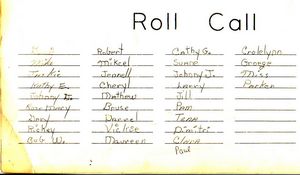 Roll Call
Mike
Jackie
Kathy E.
Johnny E.
Rose Mary
Terry
Rickey
Bob W.
Robert
Mikeal
Jennell
Cheryl
Mathew
Bruse
Darrel
Maureen
Cathy G.
Johnny J.
Larry
Jill
Pam
Tena
Dimitri
Clara
Paul
George
Miss
Parker